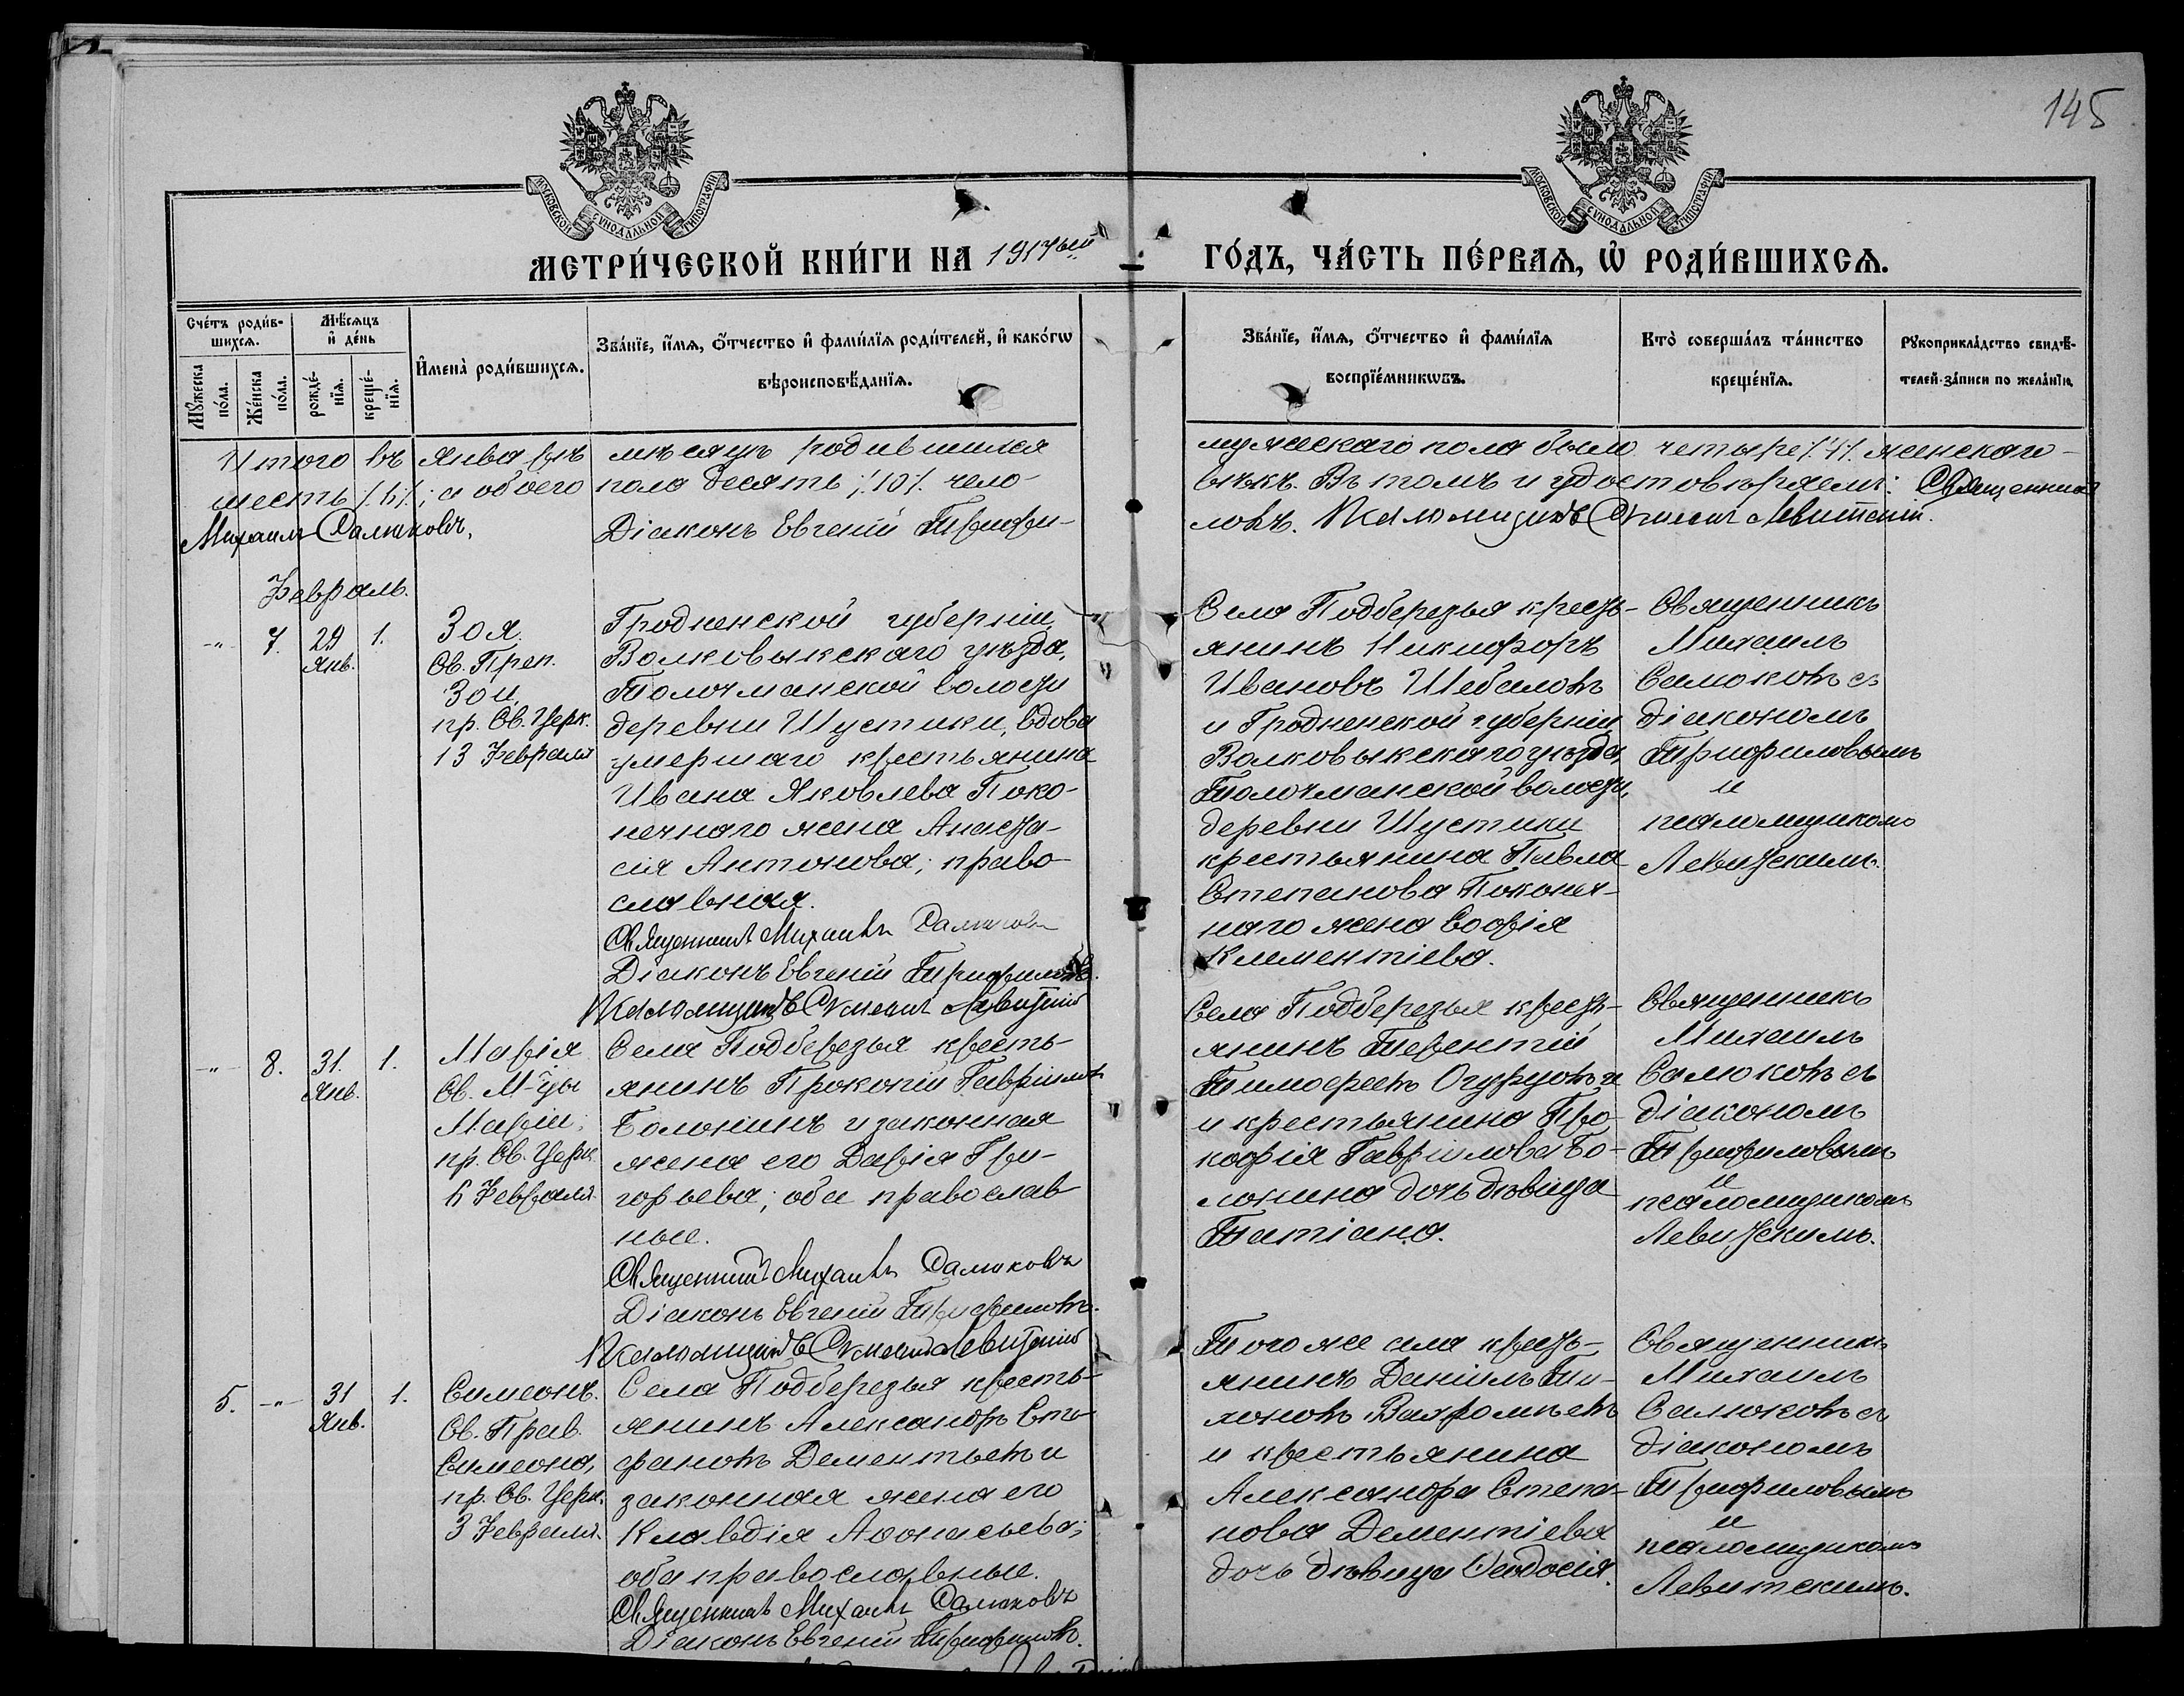 145
МОСКОВСКОЙ СѴНОДАЛЬНОЙ ТИПОГРАФІИ
МОСКОВСКОЙ СѴНОДАЛЬНОЙ ТИПОГРАФІИ
МЕТРИ́ЧЕСКОЙ КНИ́ГИ НА 1917ый ГО́ДЪ, ЧА́СТЬ ПЕ́РВАѦ, Ѡ҆ РОДИ́ВШИХСѦ.
Сче́тъ роди́в-
шихсѧ.
Мѣ́сѧцъ
и҆ де́нь
Мꙋ́жеска
по́ла.
Же́нска
по́ла.
рожде́-
нїѧ.
креще́-
нїѧ.
И҆мена̀ роди́вшихсѧ.
Зва́нїе, и҆́мѧ, ѻ҆́тчество и҆ фами́лїѧ роди́телей, и҆ како́гѡ
вѣроисповѣ́данїѧ.
Зва́нїе, и҆́мѧ, ѻ҆́тчество и҆ фами́лїѧ
воспрїе́мникѡвъ.
Кто̀ соверша́лъ та́инство
креще́нїѧ.
Рꙋкоприкла́дство свидѣ́-
телей за́писи по жела́нїю.
Итого въ Январѣ мѣсяцѣ родившихся мужескаго пола было четыре /.4/. женскаго -
шесть /.6/.; а обоего пола десять /.10/. чело- вѣкъ. Въ томъ и удостовѣряемъ: Священникъ
Михаилъ Самюковъ, Діаконъ Евгеній Трифи- ловъ. Псаломщикъ Левитскій.
Февраль.
-"- 7. 29 1.
Янв.
Зоя.
Св. Преп.
Зои,
пр. Св. Церк.
13 Февраля
Гродненской губерніи,
Волковыскскаго уѣзда,
Толочманской волости
деревни Шустики, вдова
умершаго крестьянина
Ивана Яковлева Поко-
нечнаго жена Анаста-
сія Антонова; право-
славная.
Священникъ Михаилъ Самюковъ
Діаконъ Евгеній Трифиловъ.
Псаломщикъ Левитскій
Села Подберезья кресть-
янинъ Никифоръ
Ивановъ Шебаловъ
и Гродненской губерніи
Волковыскскаго уѣзда,
Толочманской волости,
деревни Шустики
крестьянина Павла
Степанова Поконеч-
наго жена Софія
Клементіева.
Священникъ
Михаилъ
Самюковъ съ
діакономъ
Трифиловымъ
и
псаломщикомъ
Левитскимъ.
-"- 8. 31. 1.
Янв.
Марія
Св. М-цы
Маріи;
пр. Св. Церк.
6 Февраля.
Села Подберезья кресть-
янинъ Прокопій Гавриловъ
Болонинъ и законная
жена его Дарія Гри-
горьева; оба православ
ные.
Священникъ Михаилъ Самюковъ
Діаконъ Евгеній Трифиловъ.
Псаломщикъ Левитскій
Села Подберезья кресть-
янинъ Терентій
Тимофеевъ Огурцовъ и
и крестьянина Про-
кофія Гаврилова Бо-
лонина дочь дѣвица
Татіана.
Священникъ
Михаилъ
Самюковъ съ
діакономъ
Трифиловымъ
и
псаломщикомъ
Левитскимъ.
5. -"- 31 1.
Янв.
Симеонъ.
Св. Прав.
Симеона,
пр. Св. Церк.
3 Февраля.
Села Подберезья кресть-
янинъ Александръ Сте-
фановъ Дементьевъ и
законная жена его
Клавдія Аѳонасьева;
оба православные.
Священникъ Михаилъ Самюковъ
Діаконъ Евгеній Трифиловъ.
Того же села кресть-
янинъ Даніилъ Ти-
хоновъ Вахромѣевъ
и крестьянина
Александра Степа-
нова Дементіева
дочь дѣвица Ѳеодосія.
Священникъ
Михаилъ
Самюковъ съ
діакономъ
Трифиловымъ
и
псаломщикомъ
Левитскимъ.